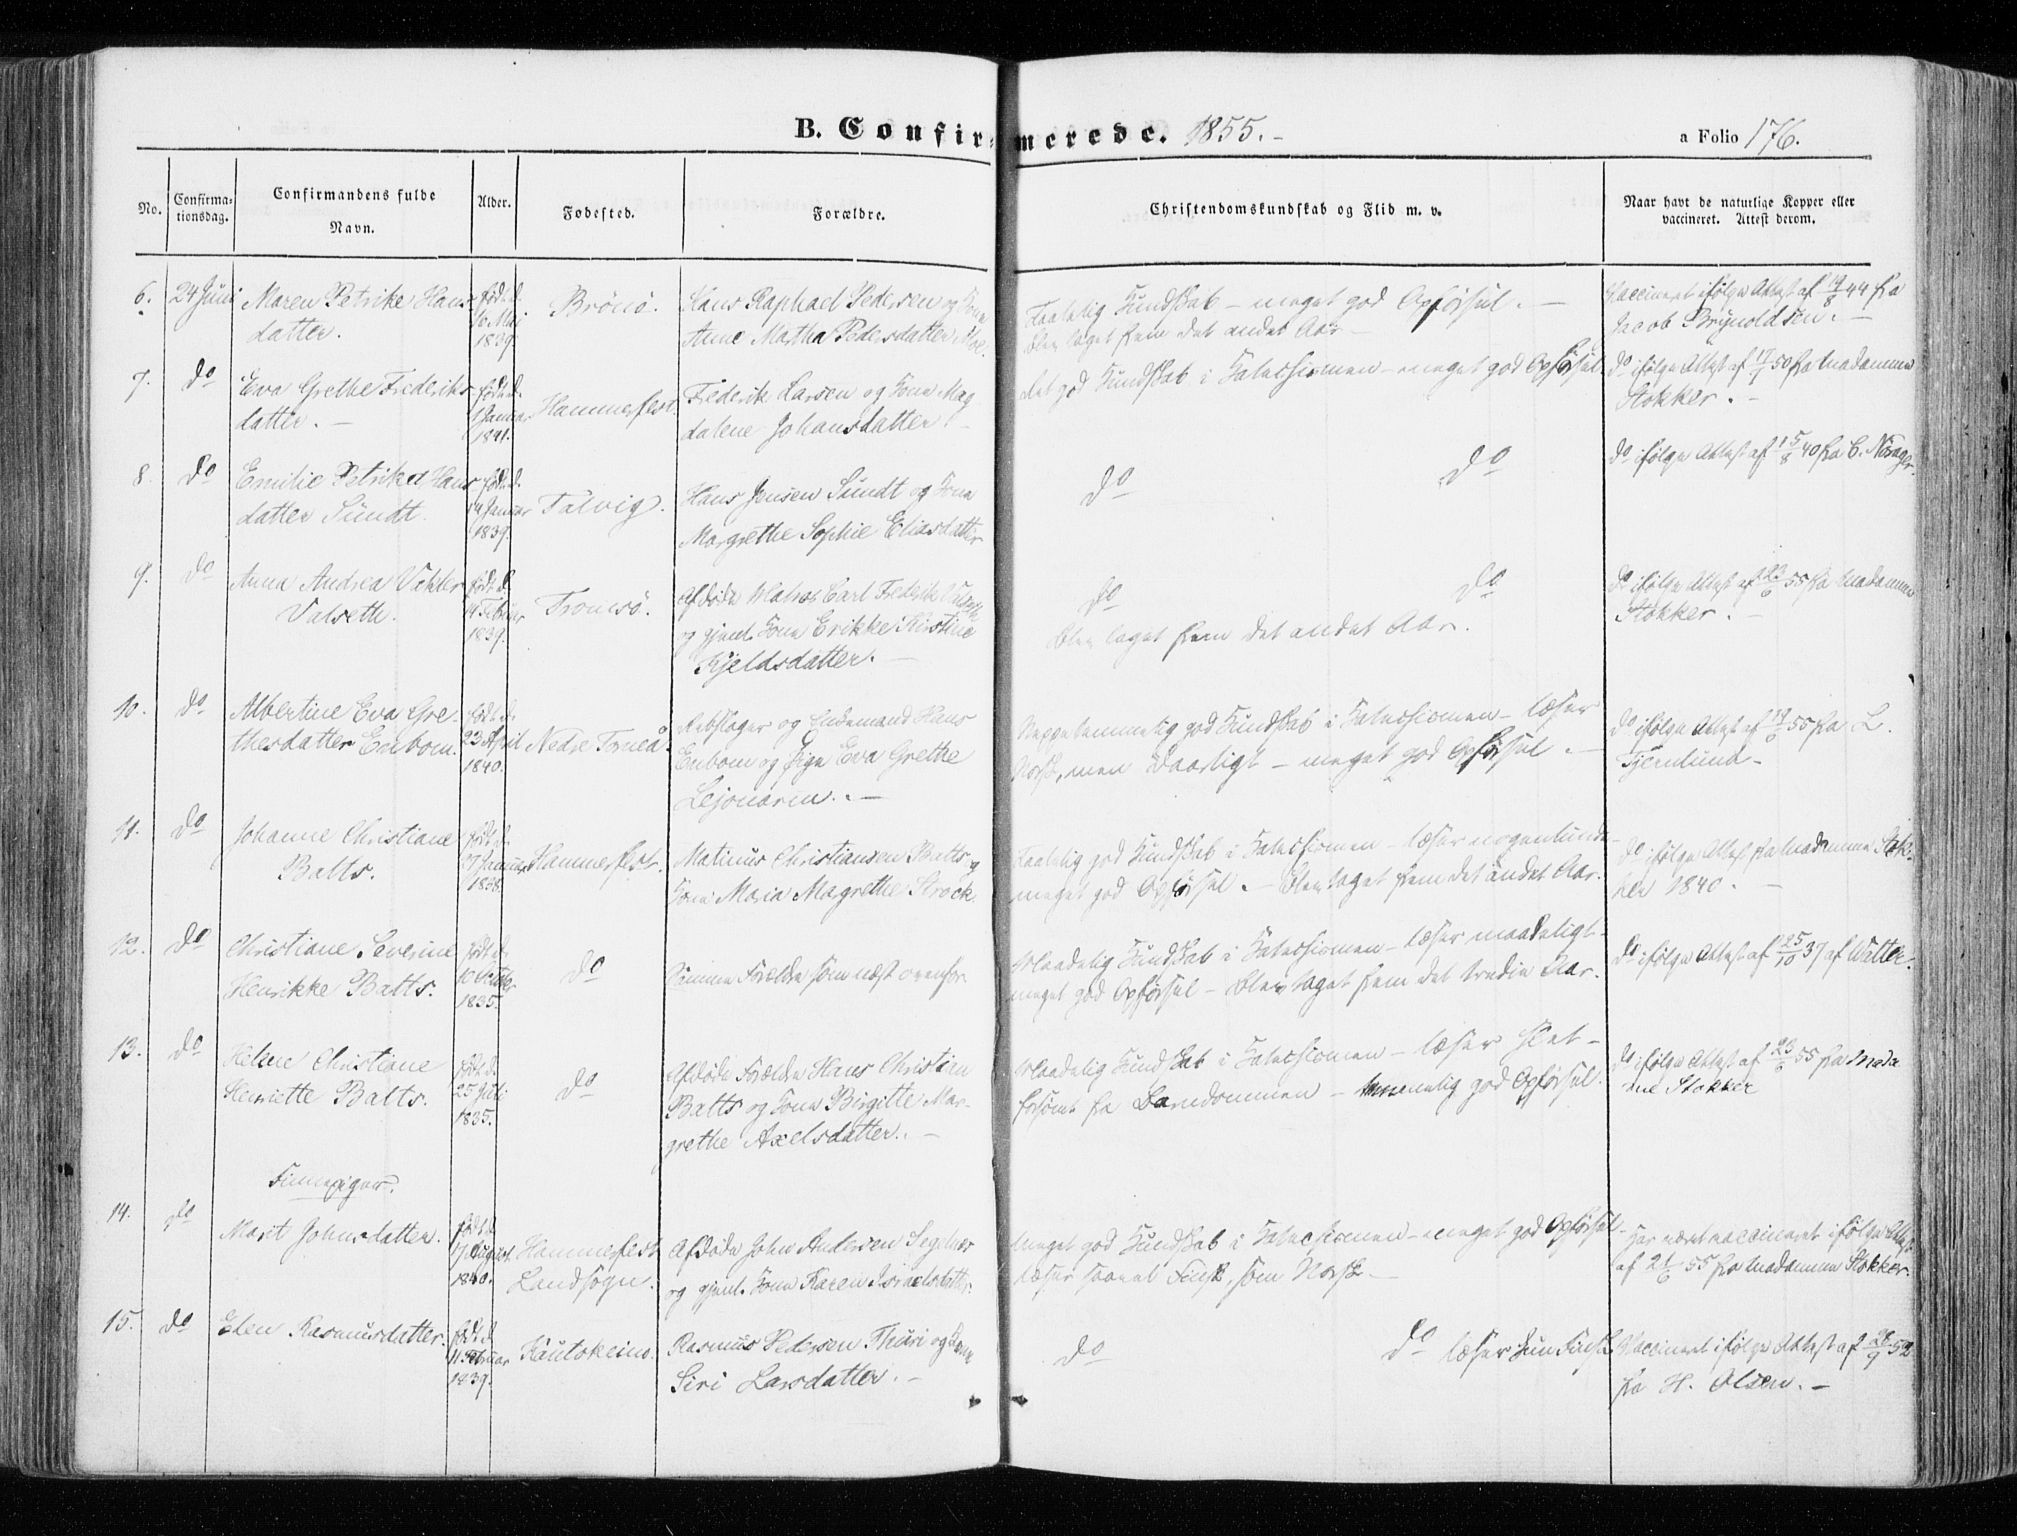 B. Confirmerede. 1855.-
a Folio 176.
No.
Confirma-
tionsdag.
Confirmandens fulde
Navn.
Alder.
Fødested.
Forældre.
Christendomskundskab og Flid m. v.
Naar havt de naturlige Kopper eller
vaccineret. Attest derom.
6.
24 Juni
Maren Petrike Hans
datter.
født d.
16 Mai
1839
Brönö.
Hans Raphael Pedersen og Kona
Anne Martha Pedersdatter
Taalelig Kundskab – meget god Opførsel. –
Blev taget frem det andet Aar –
Vaccineret ifølge Attest af 19/8 44 fra
Jacob Brynoldsen. –
7.
do
Eva Grethe Frederiks
datter. –
født d.
1 Januar
1841.
Hammerfest.
Frederik Larsen og Kona Mag
dalene Johansdatter. –
god Kundskab i Katechismen – meget god Opførsel
do ifølge Attest af 17/7 50 fra Madamme
Stokker. –
8.
do
Emilie Petrikd Hans
datter Sündt.
født d.
14 Januar
1839.
Talvig.
Hans Jensen Sündt og Kona
Margrethe Sophie Eliasdatter
do
do
do ifølge Attest af 15/8 40 fra C. Norager.
9.
do
Anna Andrea
Valseth.
født d.
14 Februar
1839.
Tromsö.
Afdøde Matros Carl Frederik Valseth
og gjenl. Kona Erikke Kirstine
Kjeldsdatter. –
do
do
Blev taget frem det andet Aar.
do ifølge Attest af 23/6 55 fra Madamme
Stokker. –
10.
do
Albertine Eva Gre-
thesdatter Enbom.
født d.
23 April
1840.
Nedre Torneå.
Rebslager og Enkemand Hans
Enbom og Pige Eva Grethe
Lejonarm. –
Neppe temmelig god Kundskab i Katechismen – læser
Norsk, men daarligt – meget god Opførsel. –
do ifølge Attest af 19/6 55 fra L.
Fjernlund –
11.
do
Johanne Christiane
Batts.
født d.
17 Januar
1838.
Hammerfest.
Matinus Christiansen Batts og
Kona Maria Magrethe Strock.
Taalelig god Kundskab i Katechismen – læser nogenlunde –
meget god Opførsel. – Blev taget frem det andet Aar.
do ifølge Attest fra Madamme Stok-
ker 1840. –
12.
do
Christiane Severine
Henrikke Batts.
født d.
10 October
1835.
do
Samme Forældre som næst ovenfor
Maadelig Kundskab i Katechismen – læser maadeligt –
meget god Opførsel – Blev taget frem det tredie Aar.
do ifølge Attest af 25/10 37 af Walter.
13.
do
Helene Christiane
Henriette Batts.
født d.
25 Juli
1835.
do
Afdøde Forældre Hans Christian
Batts og Kona Birgitte Mar-
grethe Axelsdatter. –
Maadelig Kundskab i Katechismen – læser slet –
forsømt fra Barndommen – god Opførsel.
do ifølge Attest af 23/6 55 fra Mada
me Stokker
Finnepiger.
14.
do
Marit Johnsdatter.
født d.
17 August
1840.
Hammerfest
Landsogn.
Afdøde John Andersen Segelnes
og gjenl. Kona Karen Israelsdatter.
Meget god Kundskab i Katechismen – meget god Opførsel –
læser saavel Finsk, som Norsk –
Har været vaccineret ifølge Attest
af 21/6 55 fra Madamme Stokker.
15.
do
Elen Rasmusdatter.
født d.
11 Februar
1839.
Kautokeino.
Rasmus Pedersen Thuri og Kona
Siri Larsdatter. –
do
do læser kun Finsk
Vaccineret ifølge Attest af 28/9 52
fra H. Olsen. –